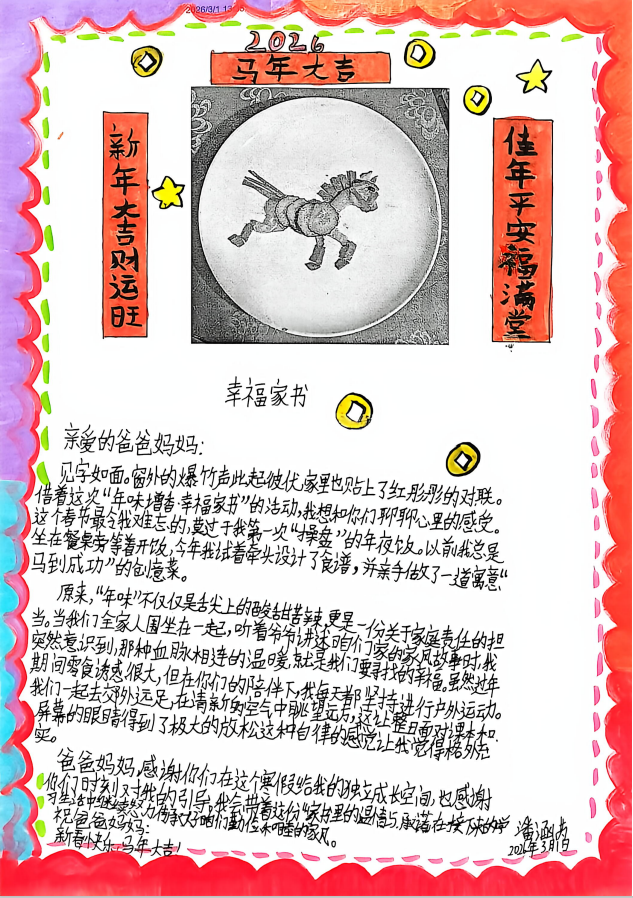 2026/3/1
2026
马年大吉
新年大吉财运旺
佳年平安福满堂
幸福家书
亲爱的爸爸妈妈：
见字如面。窗外的爆竹声此起彼伏，家里也贴上了红彤彤的对联。
借着这次“年味增香·幸福家书”的活动，我想和你们聊聊心里的感受。
这个春节最令我难忘的，莫过于我第一次“操盘”的年夜饭。以前我总是
坐在餐桌旁等着开饭，今年我试着牵头设计了食谱，并亲手做了一道寓意“
马到成功”的创意菜。
原来，“年味”不仅仅是舌尖上的酸甜苦辣，更是一份关于家庭责任的担
当。当我们全家人围坐在一起，听着爷爷讲述咱们家的家风故事时，我
突然意识到，那种血脉相连的温暖，就是我们要寻找的幸福。虽然过年
期间零食诱惑很大，但在你们的陪伴下，我每天都坚持进行户外运动。
我们一起去郊外远足，在清新的空气中眺望远方，这让整日面对课本和
屏幕的眼睛得到了极大的放松，这种自律的感觉让我觉得格外充
实。
爸爸妈妈，感谢你们在这个寒假给我的独立成长空间，也感谢
你们时刻对我的引导。我会带着这份“家书里的温情与承诺在接下来的学
习生活中继续努力，传承好咱们勤俭和睦的家风。
祝爸爸妈妈：
新春快乐，马年大吉！
潘涵
2026年3月1日